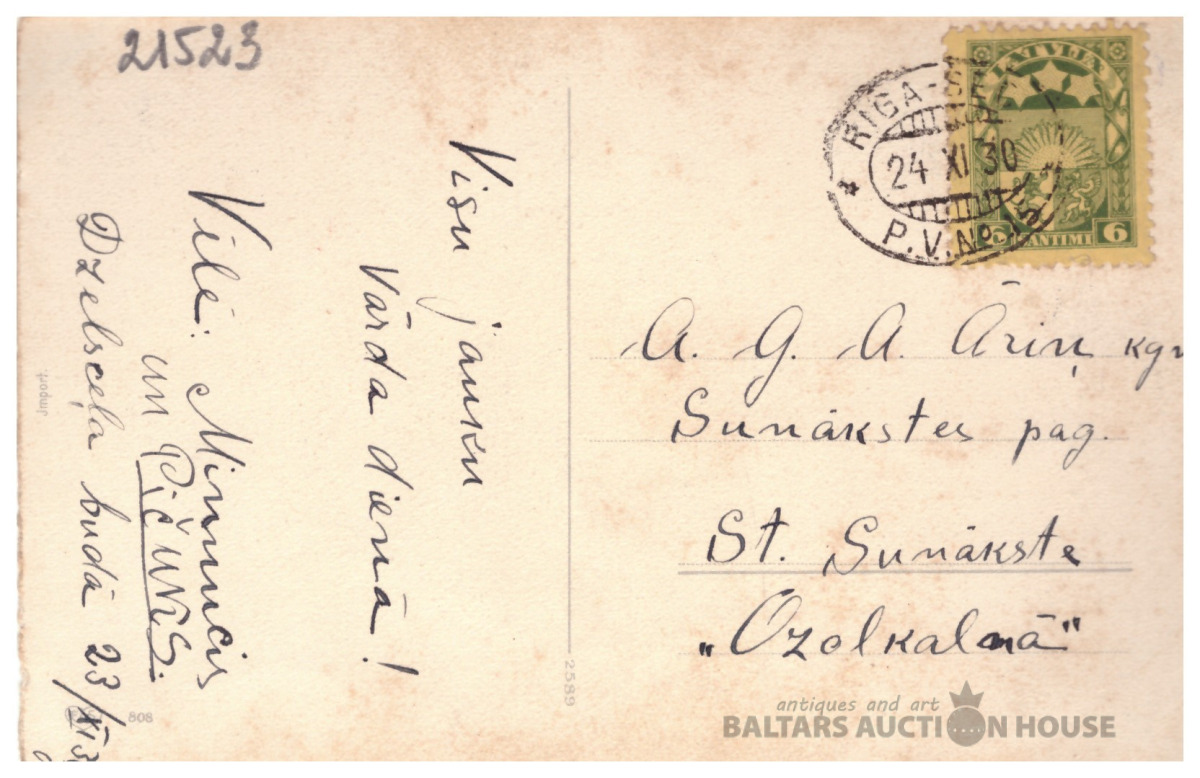 21523
Visu jauku
Vārda dienā!
Vēlē: Minnucis
un Pičuks.
Dzelsceļa budā 23/XI 3
LATVIJA
6 SANTIMI 6
RIGA-
24 XI 30
P.V.No 15
A. G. A. Āriņ kgm
Sunākstes pag.
St. Sunākste
„Ozolkalnā"
Jmport.
808
2589
antiques and art
BALTARS AUCTION HOUSE